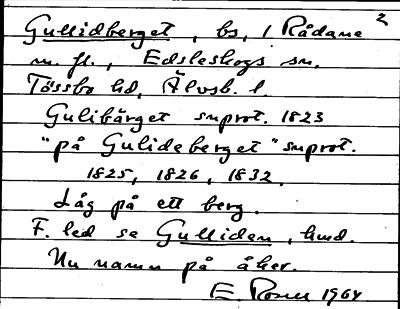 2
Gullidberget, bs, 1 Rådane
m. fl., Edsleskogs sn,
Tössbo hd, Älvsb. l.
Gulibärget snprot. 1823
"på Gulideberget" snprot.
1825, 1826, 1832.
Låg på ett berg.
F. led se Gulliden, hmd.
Nu namn på åker.
E. Rosen 1964